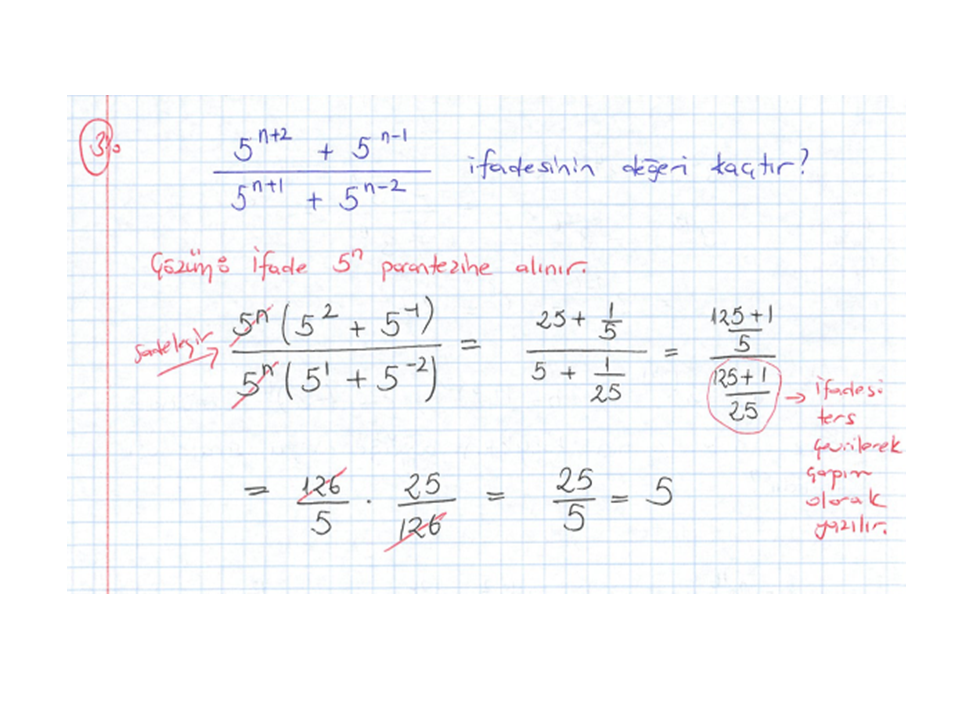 3.
5^(n+2) + 5^(n-1) / 5^(n+1) + 5^(n-2) ifadesinin değeri kaçtır?
Çözüm: İfade 5^n parantezine alınır.
sadeleşir → 5^n (5^2 + 5^-1) / 5^n (5^1 + 5^-2) = (25 + 1/5) / (5 + 1/25) = ((125+1)/5) / ((125+1)/25) → ifadesi
ters
çevrilerek
çarpım
olarak
yazılır.
= 126/5 . 25/126 = 25/5 = 5